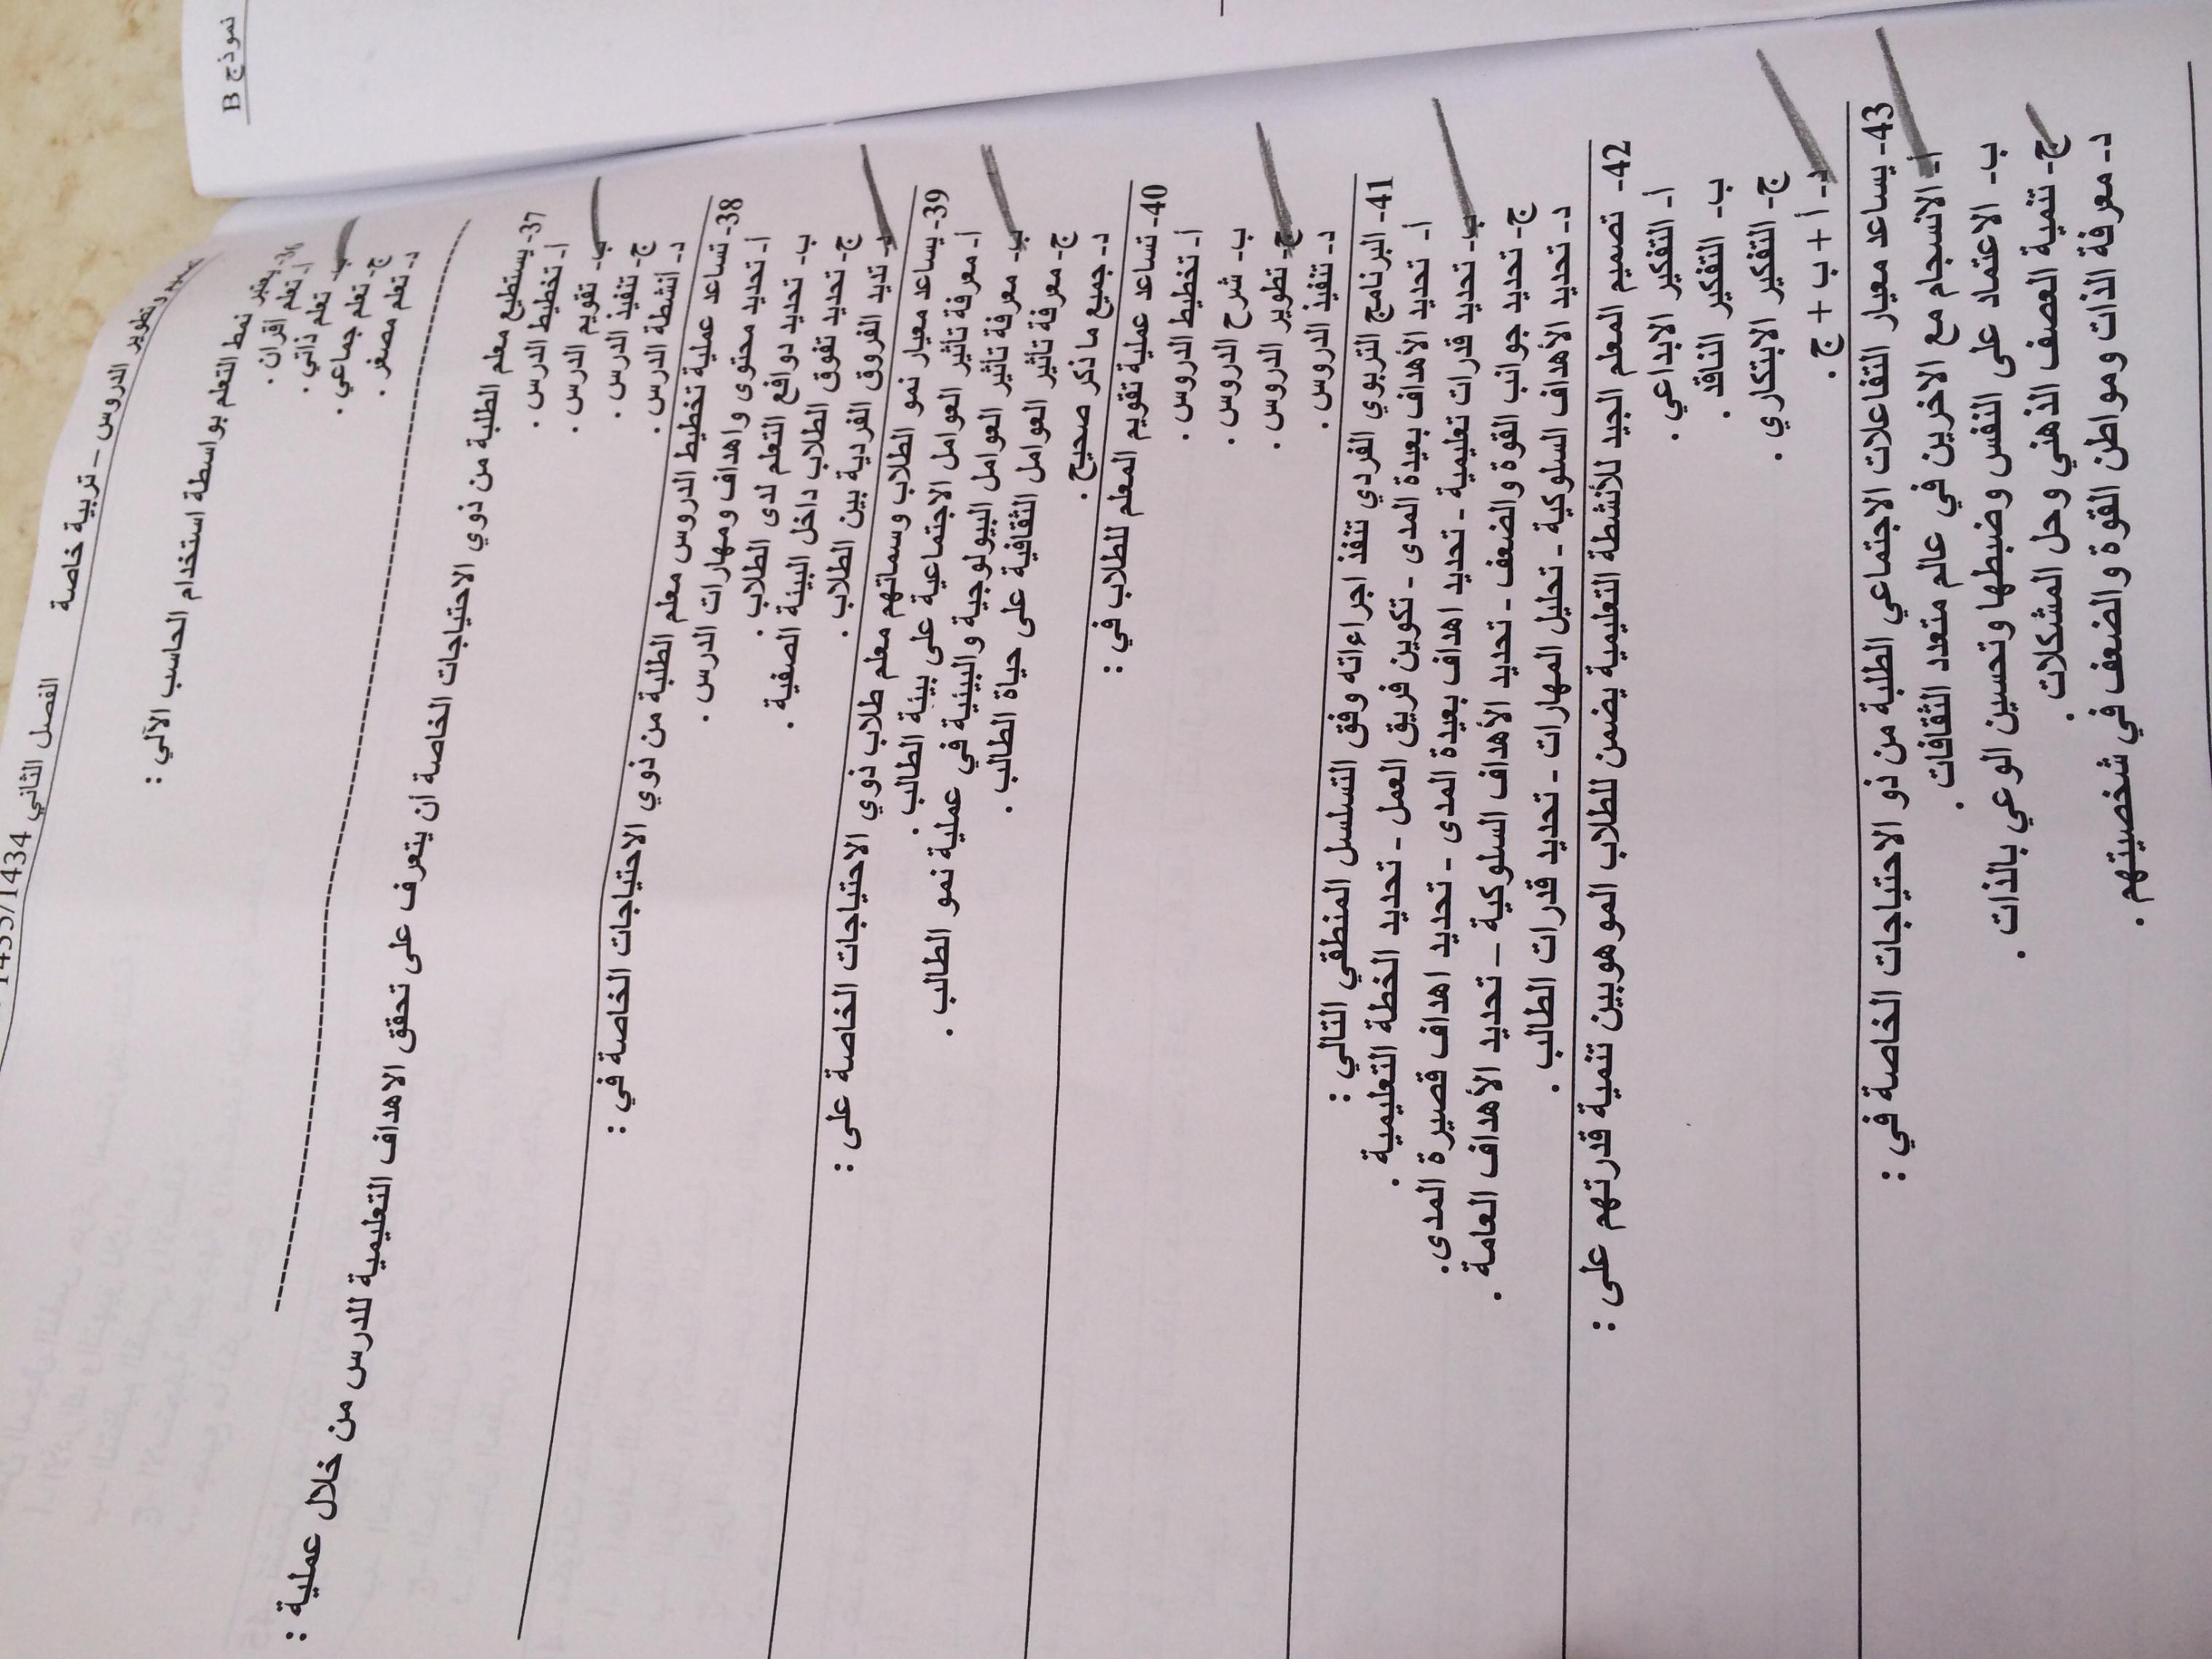 نموذج B
وتطوير الدروس – تربية خاصة الفصل الثاني 1434
36- يعتبر نمط التعلم بواسطة استخدام الحاسب الآلي :
أ- تعلم أقران .
ب- تعلم ذاتي .
ج- تعلم جماعي .
د- تعلم مصغر .
37- يستطيع معلم الطلبة من ذوي الاحتياجات الخاصة ان يتعرف على تحقق الاهداف التعليمية للدرس من خلال عملية :
أ- تخطيط الدرس .
ب- تقويم الدرس .
ج- تنفيذ الدرس .
د- أنشطة الدرس .
38- تساعد عملية تخطيط الدروس معلم الطلبة من ذوي الاحتياجات الخاصة في :
أ- تحديد محتوى واهداف ومهارات الدرس .
ب- تحديد دوافع التعلم لدى الطلاب .
ج- تحديد تفوق الطلاب داخل البيئة الصفية .
د- تديد الفروق الفردية بين الطلاب .
39- يساعد معيار نمو الطلاب وسماتهم معلم طلاب ذوي الاحتياجات الخاصة على :
أ- معرفة تأثير العوامل الاجتماعية على بيئة الطالب .
ب- معرفة تأثير العوامل البيولوجية والبيئية في عملية نمو الطالب .
ج- معرفة تأثير العوامل الثقافية على حياة الطالب .
د- جميع ما ذكر صحيح .
40- تساعد عملية تقويم المعلم للطلاب في :
أ- تخطيط الدروس .
ب- شرح الدروس .
ج- تطوير الدروس .
د- تنفيذ الدروس .
41- البرنامج التربوي الفردي تنفذ اجراءاته وفق التسلسل المنطقي التالي :
أ- تحديد الأهداف بعيدة المدى - تكوين فريق العمل - تحديد الخطة التعليمية .
ب- تحديد قدرات تعليمية - تحديد اهداف بعيدة المدى - تحديد اهداف قصيرة المدى.
ج- تحديد جوانب القوة والضعف - تحديد الأهداف السلوكية – تحديد الأهداف العامة .
د- تحديد الأهداف السلوكية - تحليل المهارات - تحديد قدرات الطالب .
42- تصميم المعلم الجيد للأنشطة التعليمية يضمن للطلاب الموهوبين تنمية قدرتهم على :
أ- التفكير الابداعي .
ب- التفكير الناقد .
ج- التفكير الابتكاري .
د- أ + ب + ج .
43- يساعد معيار التفاعلات الاجتماعي الطلبة من ذو الاحتياجات الخاصة في :
أ- الانسجام مع الاخرين في عالم متعدد الثقافات .
ب- الاعتماد على النفس وضبطها وتحسين الوعي بالذات .
ج- تنمية العصف الذهني وحل المشكلات .
د- معرفة الذات ومواطن القوة والضعف في شخصيتهم .